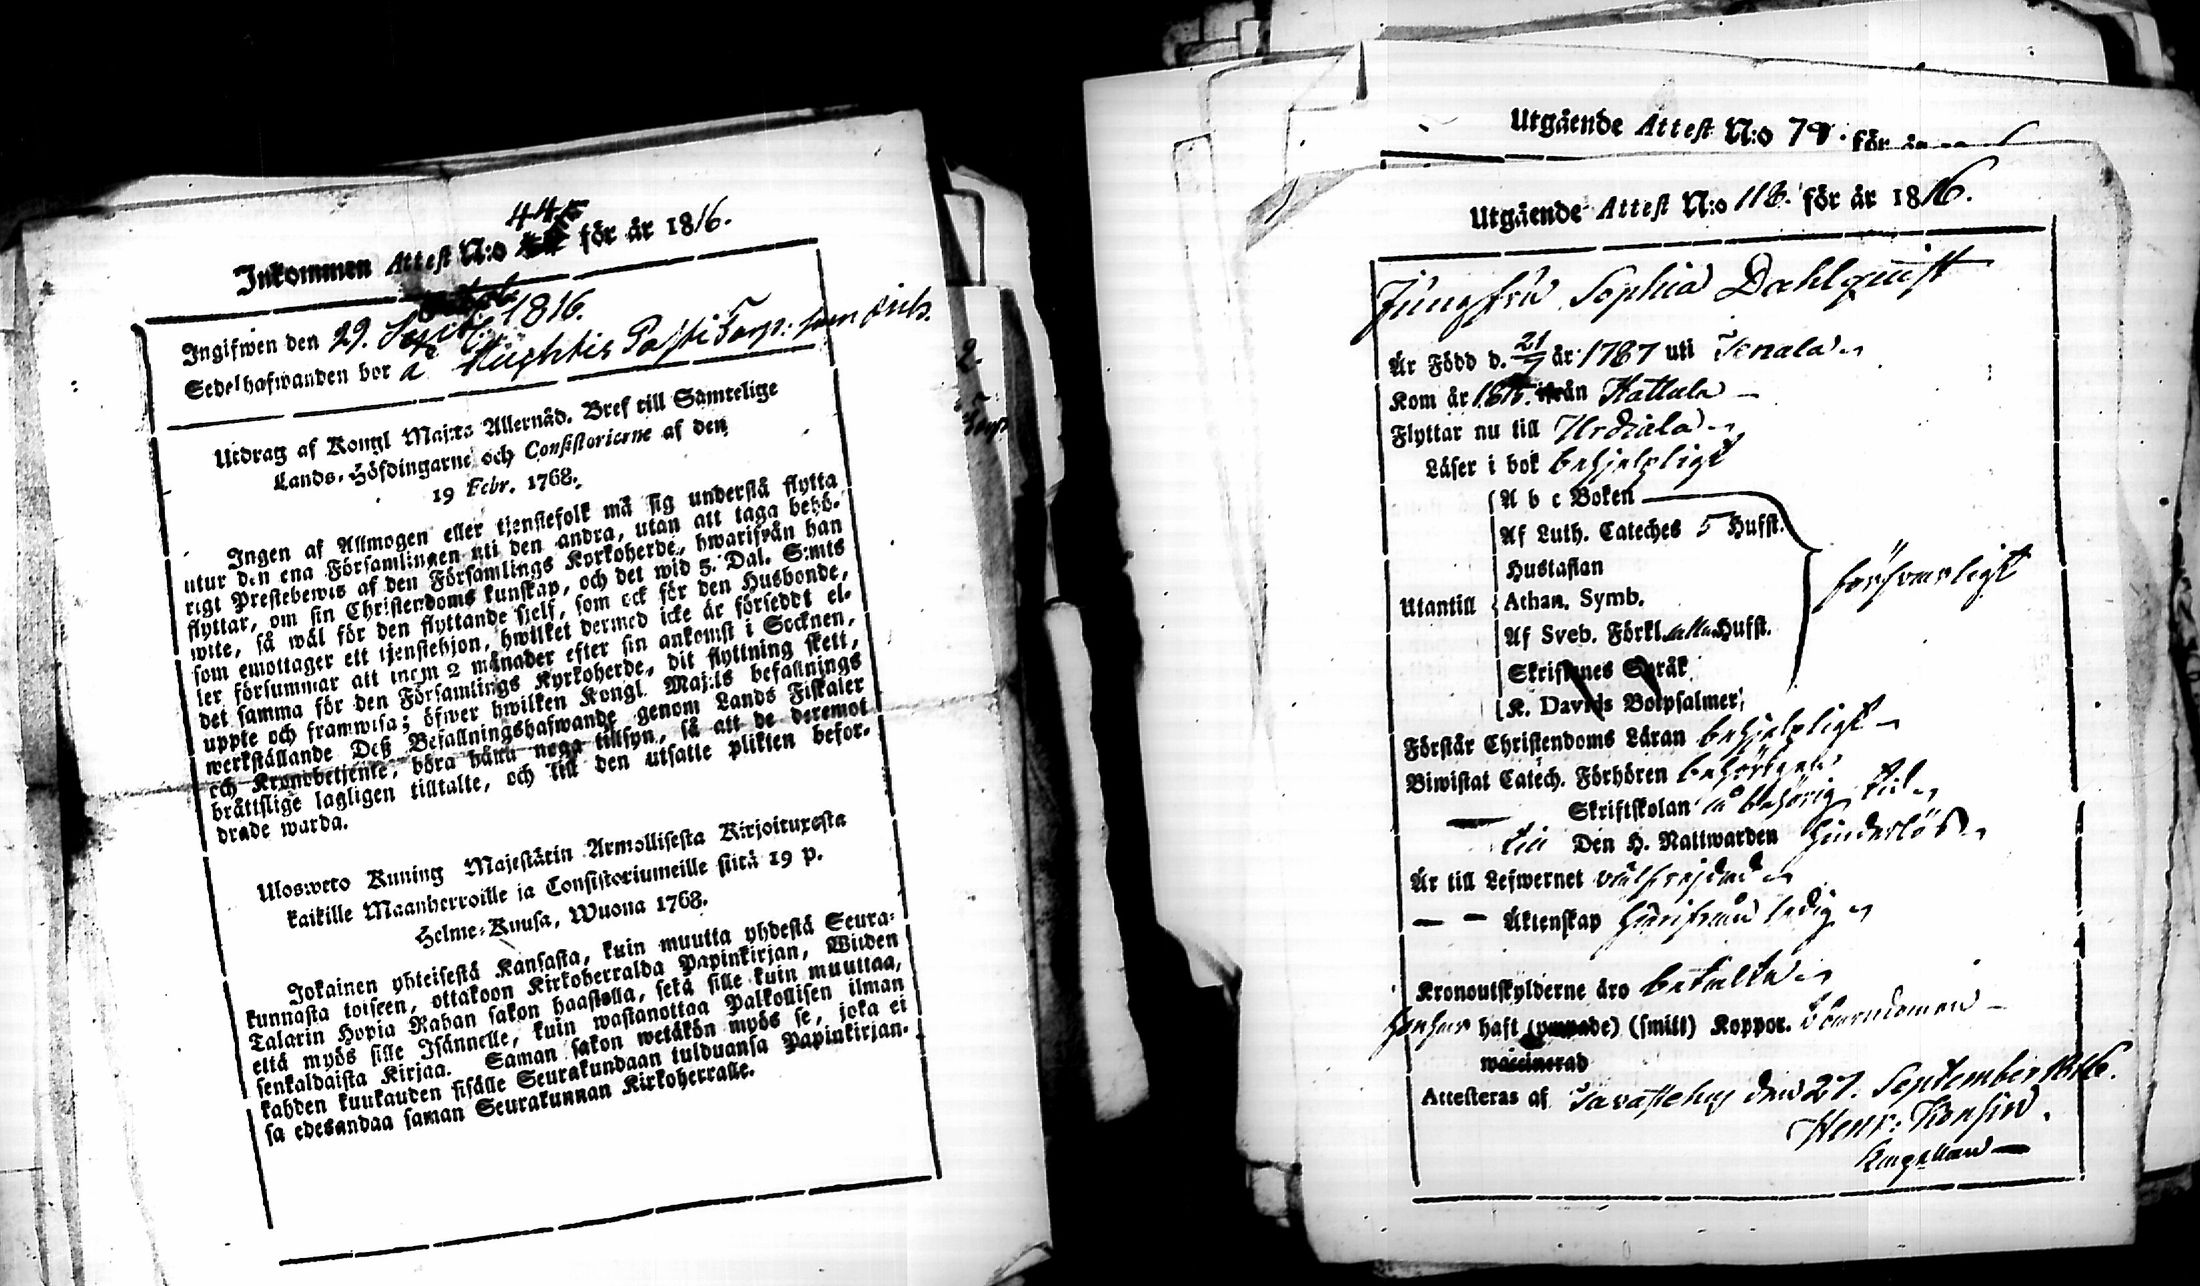 Inkommen Attest N:o 44 för år 1816.
Ingifwen den 29. Septb. 1816.
Sedelhafwanden bor å
Utdrag af Kongl Maj:ts Allernåd. Bref till Samtelige
Lands-Höfdingarne och Consistorierne af den
19 Febr. 1768.
Ingen af Allmogen eller tjenstefolk må sig understå flytta
utur den ena Församlingen uti den andra, utan att taga behö-
rigt Prestebewis af den Församlings Kyrkoherde, hwarifrån han
flyttar, om sin Christendoms kunskap, och det wid 5. Dal. S:mts
wite, så wäl för den flyttande sjelf, som ock för den Husbonde,
som emottager ett tjenstehjon, hwilket dermed icke är försedt el-
ler försummar att inom 2 månader efter sin ankomst i Socknen,
det samma för den Församlings Kyrkoherde, dit flyttning skett,
uppte och framwisa; öfwer hwilken Kongl. Maj:ts befallnings
werkställande Deß Befallningshafwande genom Lands Fiskaler
och Kronobetjente, böra hålla noga tillsyn, så att de deremot
bråttslige lagligen tilltalte, och till den utsatte plikten befor-
drade warda.
Uloswero Kuning Majestätin Armollisesta Kirjoituxesta
kaikille Maanherroille ja Consistoriumeille siitä 19 p.
Helme-Kuusa, Wuona 1768.
Jokainen yhteisestä Kansasta, kuin muutta yhdestä Seura-
kunnasta toiseen, ottakoon Kirkoherralda Papinkirjan, Wiiden
Talarin Hopia Rahan sakon haastolla, sekä sille kuin muuttaa,
eltä myös sille Isännelle, kuin wastanottaa Palkollisen ilman
senkaldaista Kirjaa. Saman sakon wetäkön myös se, joka ei
kahden kuukauden sisälle Seurakundaan tulduansa Papinkirjan-
sa edesandaa saman Seurakunnan Kirkoherralle.
Utgående Attest N:o 78. för år
Utgående Attest N:o 118. för år 1816.
Jungfru Sophia Dahlquist
Är Född d. 21/9 år 1787 uti Tenala
Kom år 181 ifrån Hattula
Flyttar nu till Urdiala
Läser i bok behjelpligt
A b c Boken
Af Luth. Cateches 5 Hufst.
Hustaflan
Utantill Athan. Symb.
Af Sveb. Förkl alla Hufst.
försvarligt
Skriftenes Språk
K. Davids Botpsalmer,
Förstår Christendoms Läran behjelpligt
Biwistat Catech. Förhören behörigen
Skriftskolan å behörig tid
till Den H. Nattwarden hinderlös
Är till Lefwernet välfrejdad
— — Äktenskap härifrån ledig
Kronoutskylderne äro betalta
haft (ympade) (smitt) Koppor. i barndomen
waccinerad
Attesteras af Tavastehus den 27. September 1816.
Henr: